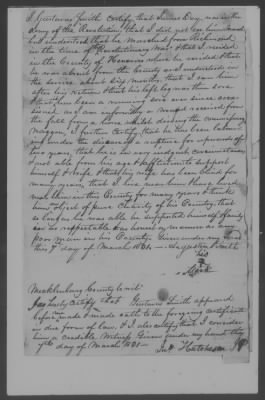 I Gustavus Smith certify that James Day, was in the
Army of the Revolution, that I did not see him inlisted,
but understood that he marched from Richmond
in the time of Revolutionary war & that I resided
in the County of Henrico when he resided, that
he was absent from the County and understood in
the service about eight months, that I saw him
after his return & that his left leg was then sore
& that has been a running sore ever since occasioned
as I am informed by a wound received from
the fall from a Horse whilst driving the
Waggon, I further certify that he has been laboring
under the disease of a rupture for upwards of
ten years, that he is in very indigent circumstances
& not able from his age & affliction to support
himself & wife, & that his wife has been blind for
many years, that I live near him & have lived
near him in this County for many years & think
him object of pure charity of his Country, that
so long as he was able he supported himself & family
in as respectable and honest a manner as any
poor man in his County. Given under my hand
this 7 day of March 1831. Gustavus Smith
his
X
Mark
Mecklenburg County to wit
I do hereby certify that Gustavus Smith appeared
before me & made oath to the forgoing certificate
in due form of law, & I also certify that I consider
him a credible Witness Given under my hand this
7th day of March 1831 Jno Hutcheson JP